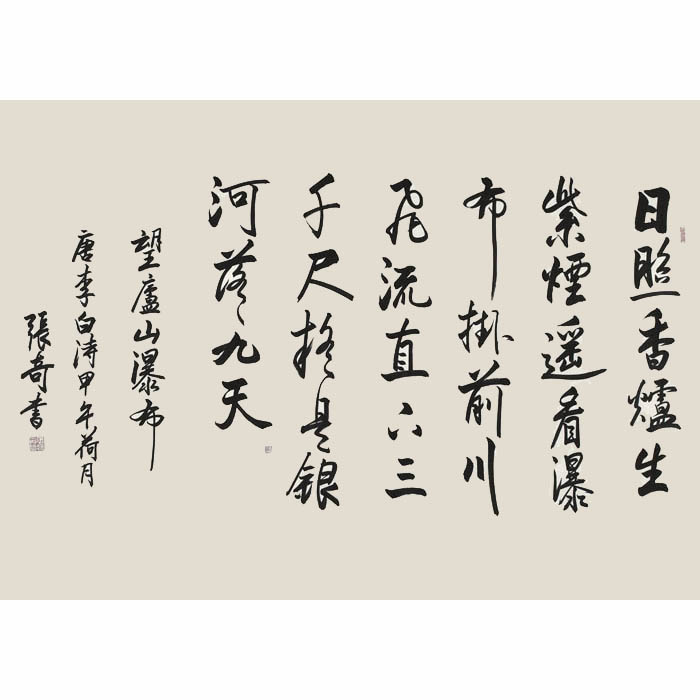 日照香爐生
紫煙遥看瀑
布掛前川
飛流直下三
千尺疑是銀
河落九天
望廬山瀑布
唐李白詩甲午荷月
張奇書